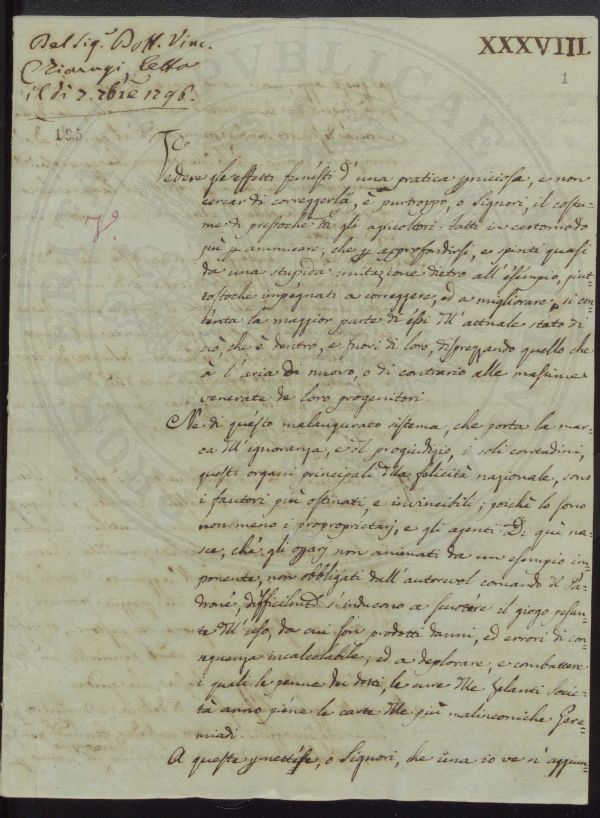 Del Sig.r Dott. Vinc.
Chiarugi Letta
il dì 7. 7bre 1796.
XXXVIII.
1
185
7º
Vedere gli effetti funesti d'una pratica perniciosa, e non
cercar di correggerla, è purtroppo, o Signori, il costu-
me di pressoche tutti gli agricoltori. Fatti in certo modo
più per ammirare, che per approfondirsi, e spinti quasi
da una stupida imitazione dietro all'esempio, piut-
tostoche impegnati a correggere, ed a migliorare, si con-
tenta la maggior parte di essi dell'attuale stato di
ciò, che è dentro, e fuori di loro, disprezzando quello che
à l'aria di nuovo, o di contrario alle massime
venerate de loro progenitori.
Ne di questo malaugurato sistema, che porta la mar-
ca dell'ignoranza, e del pregiudizio, i soli contadini,
questi organi principali della felicità nazionale, sono
i fautori più ostinati, e invincibili; poichè lo sono
non meno i proproprietarj, e gli agenti. Di quì na-
sce, chè gli operaj non animati da un esempio im-
ponente, non obbligati dall'autorevol comando del Pa-
drone, difficilmente s'inducono a scuotere il giogo pesan-
te dell'uso, da cui son prodotti danni, ed errori di con-
seguenza incalcolabile, ed a deplorare, e combattere
i quali le penne dei dotti, le cure delle zelanti Socie-
tà anno piene le carte delle più malinconiche Gere-
miadi.
A queste permettete, o Signori, che una io ve n'aggiun-